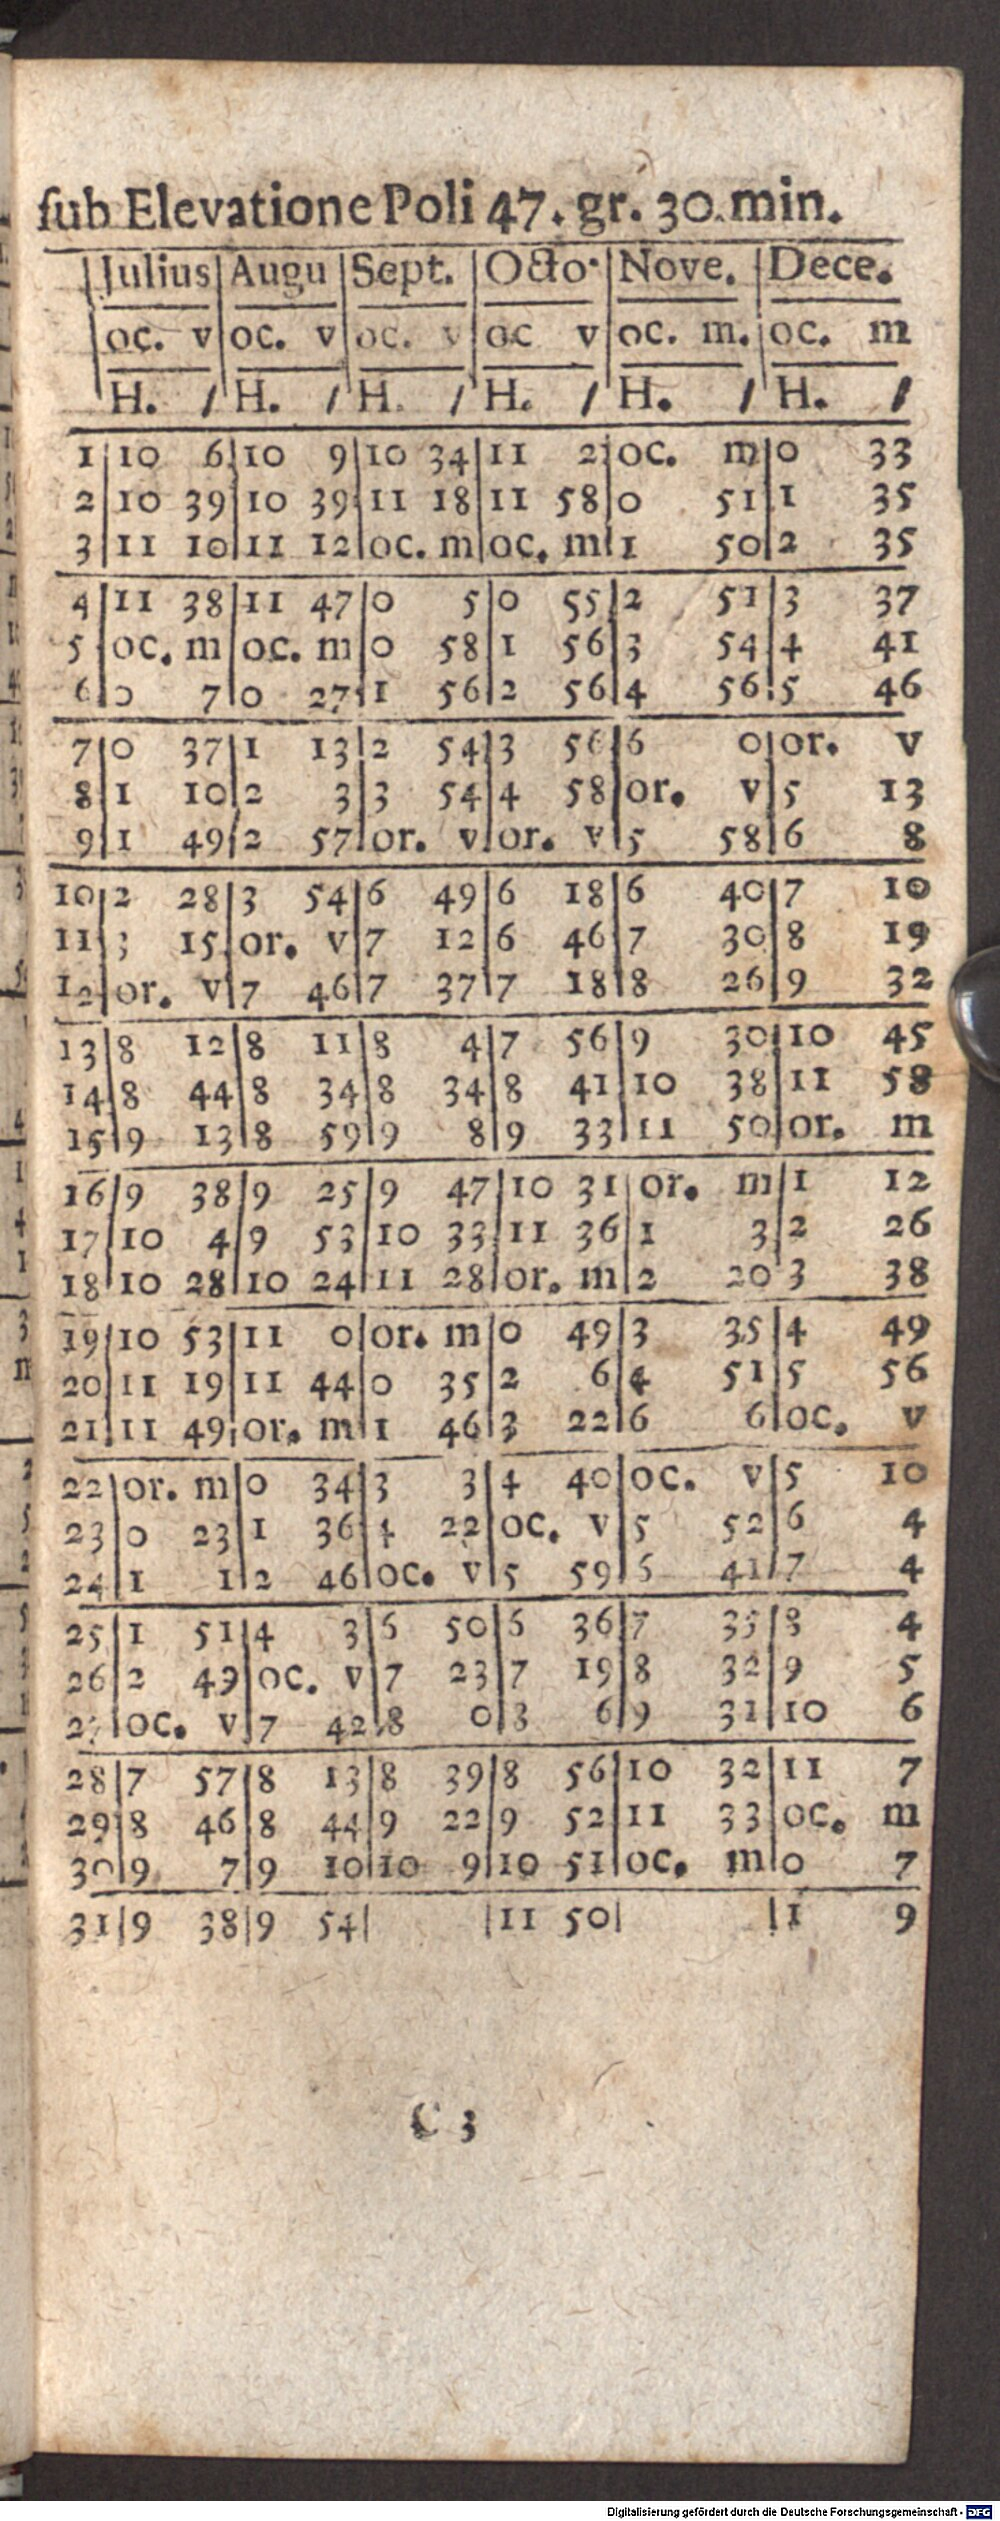 sub Elevatione Poli 47. gr. 30. min.
Julius Augu Sept. Octo· Nove. Dece.
oc. v oc. v oc. v oc v oc. m. oc. m
H. / H. / H. / H. / H. / H. /
1 10 6 10 9 10 34 11 2 oc. m 0 33
2 10 39 10 39 11 18 11 58 0 51 1 35
3 11 10 11 12 oc. m oc. m 1 50 2 35
4 11 38 11 47 0 5 0 55 2 51 3 37
5 oc. m oc. m 0 58 1 56 3 54 4 41
6 0 7 0 27 1 56 2 56 4 56 5 46
7 0 37 1 13 2 54 3 56 6 0 or. v
8 1 10 2 3 3 54 4 58 or. v 5 13
9 1 49 2 57 or. v or. v 5 58 6 8
10 2 28 3 54 6 49 6 18 6 40 7 10
11 3 15 or. v 7 12 6 46 7 30 8 19
12 or. v 7 46 7 37 7 18 8 26 9 32
13 8 12 8 11 8 4 7 56 9 30 10 45
14 8 44 8 34 8 34 8 41 10 38 11 58
15 9 13 8 59 9 8 9 33 11 50 or. m
16 9 38 9 25 9 47 10 31 or. m 1 12
17 10 4 9 53 10 33 11 36 1 3 2 26
18 10 28 10 24 11 28 or. m 2 20 3 38
19 10 53 11 0 or. m 0 49 3 35 4 49
20 11 19 11 44 0 35 2 6 4 51 5 56
21 11 49 or. m 1 46 3 22 6 6 oc. v
22 or. m 0 34 3 3 4 40 oc. v 5 10
23 0 23 1 36 4 22 oc. v 5 52 6 4
24 1 1 2 46 oc. v 5 59 6 41 7 4
25 1 51 4 3 6 50 6 36 7 35 8 4
26 2 49 oc. v 7 23 7 19 8 32 9 5
27 oc. v 7 42 8 0 8 6 9 31 10 6
28 7 57 8 13 8 39 8 56 10 32 11 7
29 8 46 8 44 9 22 9 52 11 33 oc. m
30 9 7 9 10 10 9 10 51 oc. m 0 7
31 9 38 9 54 11 50 1 9
C 3
Digitalisierung gefördert durch die Deutsche Forschungsgemeinschaft - DFG